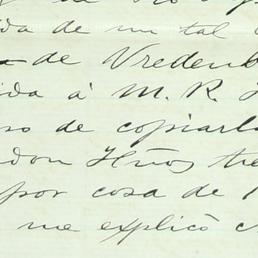 da de un tal
de Vredenb
ida á M. R.
so de copiarla
don Hños tre
por cosa de
me explicó